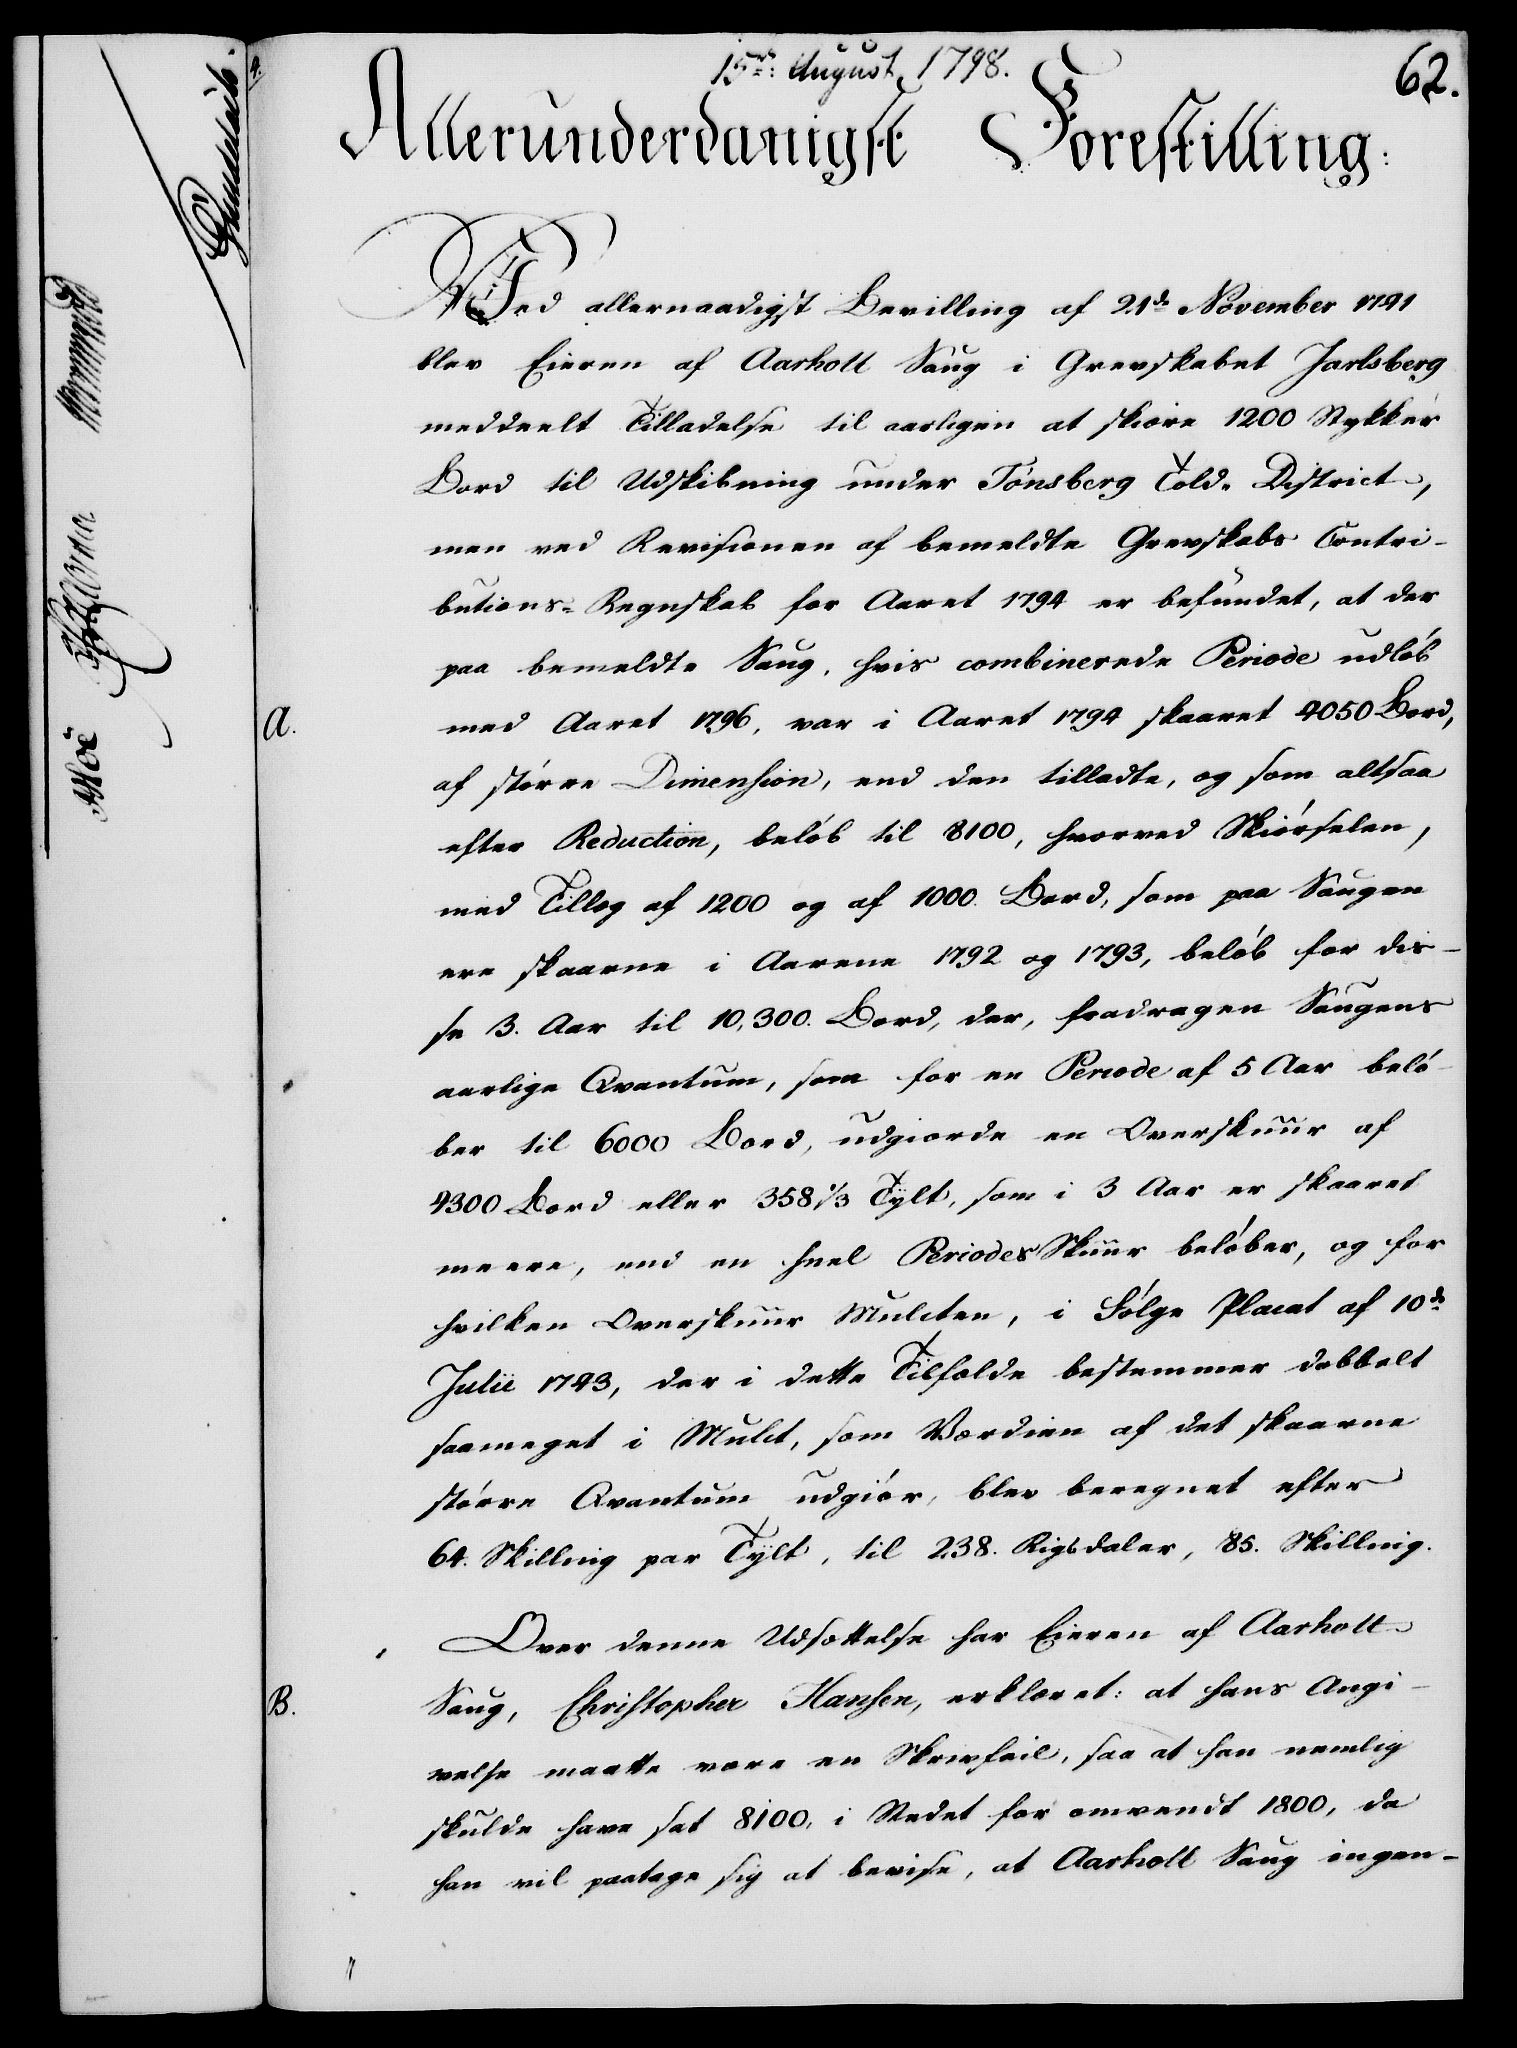 15de August 1798.
62.
Allerunderdanigst Forestilling:
Ved allernaadigst Bevilling af 21de November 1791
blev Eieren af Aarholt Saug i Grevskabet Jarlsberg
meddeelt Tilladelse til aarligen at skiære 1200 Stykker
Bord til Udskibning under Tønsberg Told-District,
men ved Revisionen af bemeldte Grevskabs Contri-
butions-Regnskab for Aaret 1794 er befundet, at der
paa bemeldte Saug, hvis combinerede Periode udløb
A.
med Aaret 1796, var i Aaret 1794 skaaret 4050 Bord,
af større Dimension, end den tilladte, og som altsaa
efter Reduction, beløb til 8100, hvorved Skiørselen,
med Tillæg af 1200 og af 1000 Bord, som paa Saugen
ere skaarne i Aarene 1792 og 1793, beløb for dis-
se 3. Aar til 10,300. Bord, der, fradragen Saugens
aarlige Qvantum, som for en Periode af 5 Aar belø-
ber til 6000 Bord, udgiorde en Overskuur af
4300 Bord eller 358 1/3 Tylt, som i 3 Aar er skaaret
meere, end en heel Periodes Skuur beløber, og for
hvilken Overskuur Mulcten, i Følge Placat af 10de
Julii 1793, der i dette Tilfælde bestemmer dobbelt
saameget i Mulct, som Værdien af det skaarne
større Qvantum udgiør, blev beregnet efter
64. Skilling per Tylt, til 238. Rigsdaler, 85. Skilling.
Over denne Udsættelse har Eieren af Aarholt
B.
Saug, Christopher Hansen, erklæret: at hans Angi-
velse maatte være en Skrivfeil, saa at han nemlig
skulde have sat 8100, i Stedet for omvendt 1800, da
han vil paatage sig at bevise, at Aarholt Saug ingen-